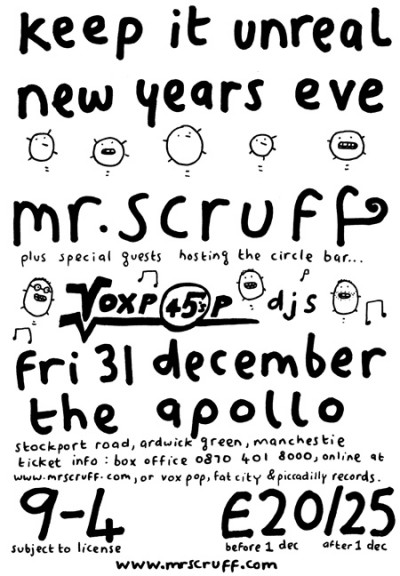 keep it unreal
new years eve
mr. scruff
plus special guests hosting the circle bar...
Voxpop 45's djs
fri 31 december
the apollo
stockport road, ardwick green, manchestie
ticket info : box office 0870 401 8000, online at
www.mrscruff.com, or vox pop, fat city & piccadilly records.
9-4 £20/25
subject to license before 1 dec after 1 dec
www.mrscruff.com